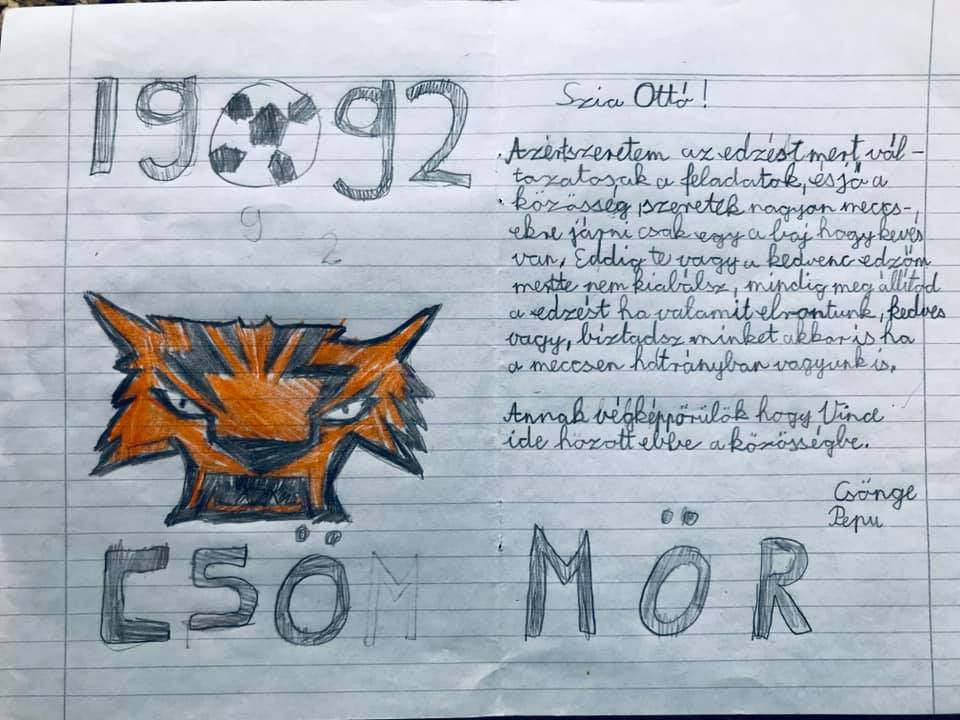 19 92
9
2
CSÖM
MÖR
Szia Ottó!
Azértszeretem az edzést mert vál-
tozatosak a feladatok, és jó a
közösség, szeretek nagyon meccs-
ekre járni csak egy a baj hogy kevés
van. Eddig te vagy a kedvenc edzőm
mertte nem kiabálsz, mindig meg állítod
a edzést ha valamit elrontunk, kedves
vagy, bíztadsz minket akkor is ha
a meccsen hátrányban vagyunk is.
Annak végképpörülök hogy Vinci
ide hozott ebbe a közösségbe.
Csönge
Pepu